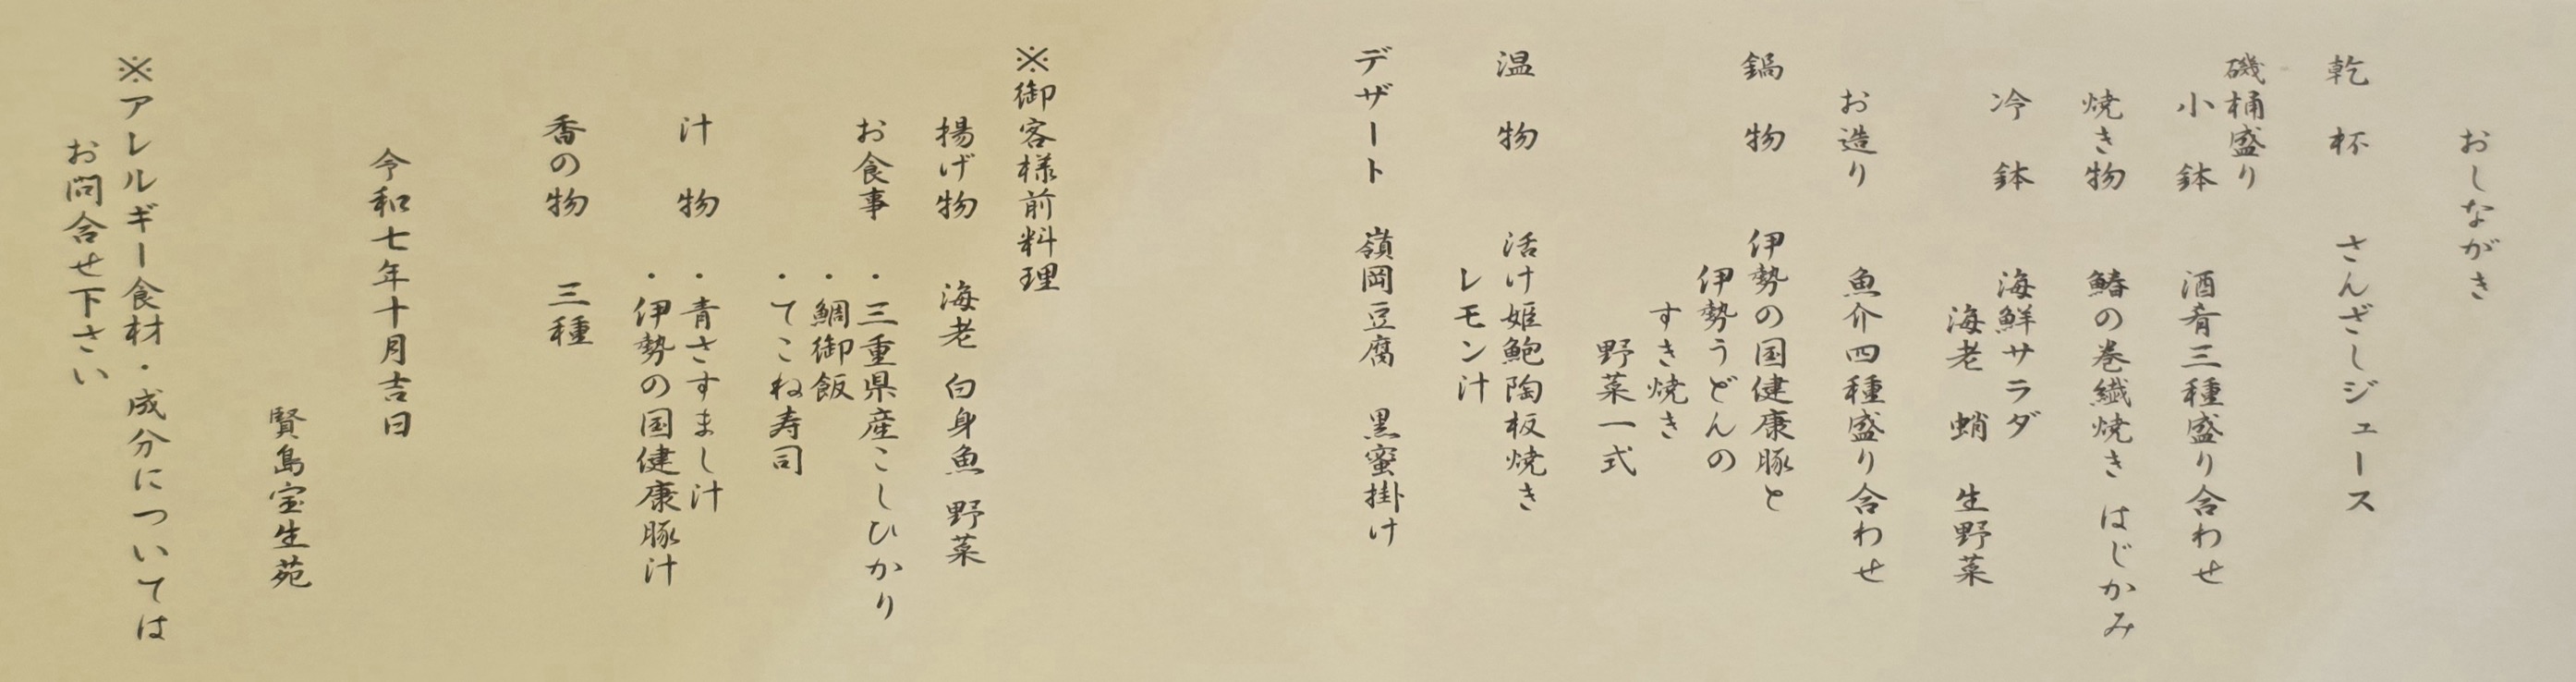 おしながき
乾杯 さんざしジュース
磯桶盛り
小鉢 酒肴三種盛り合わせ
焼き物 鰆の巻繊焼き はじかみ
冷鉢 海鮮サラダ
海老 蛸 生野菜
お造り 魚介四種盛り合わせ
鍋物 伊勢の国健康豚と
伊勢うどんの
すき焼き
野菜一式
温物 活け姫鮑陶板焼き
レモン汁
デザート 嶺岡豆腐 黒蜜掛け
※御客様前料理
揚げ物 海老 白身魚 野菜
お食事 ・三重県産こしひかり
・鯛御飯
・てこね寿司
汁物 ・青さすまし汁
・伊勢の国健康豚汁
香の物 三種
令和七年十月吉日
賢島宝生苑
※アレルギー食材・成分については
お問合せ下さい